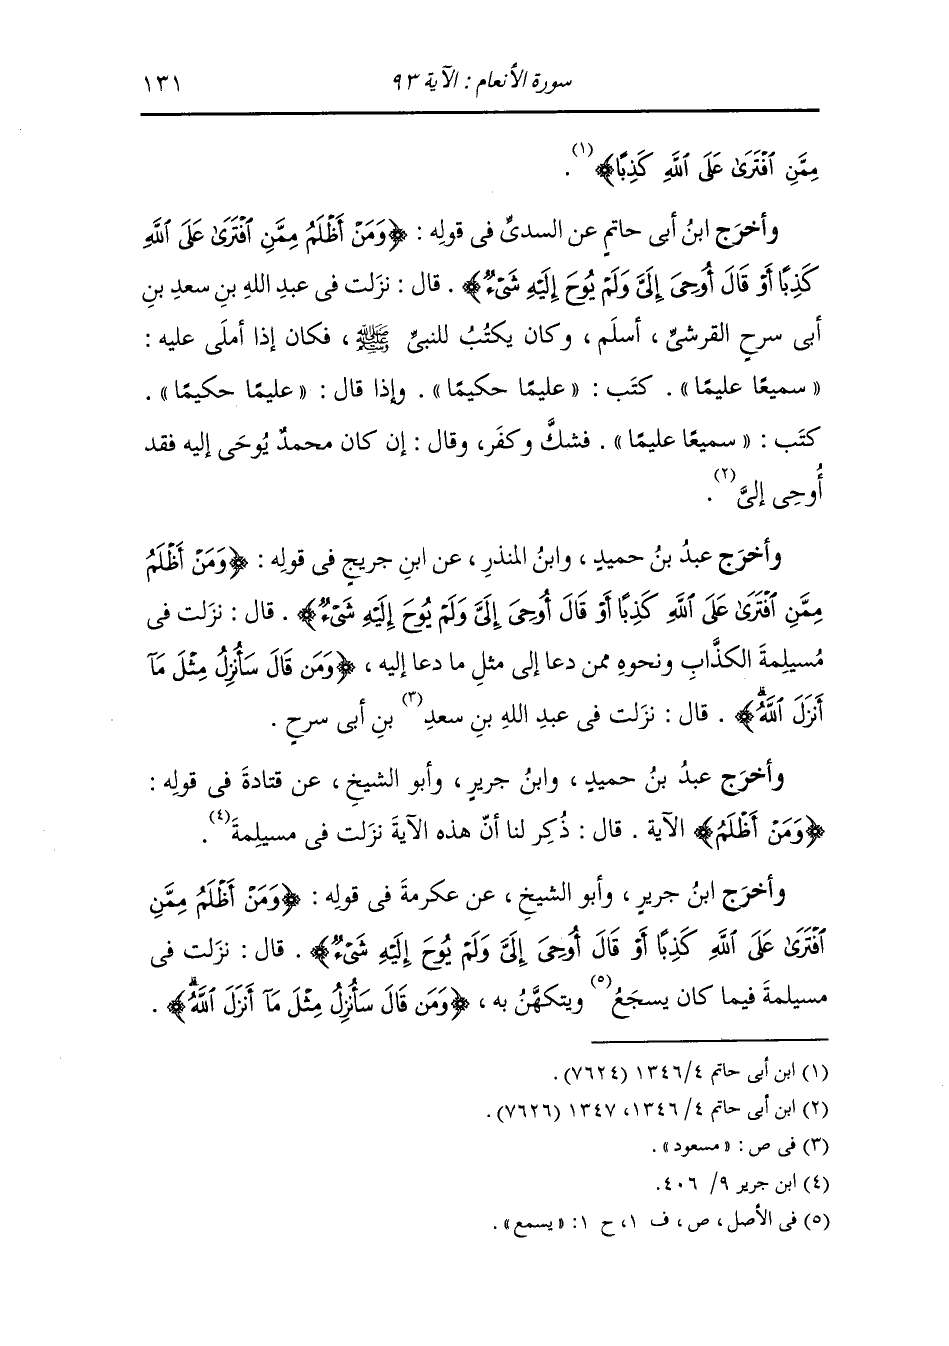 سورة الأنعام : الآية ٩٣ ١٣١
مِمَّنِ ٱفْتَرَىٰ عَلَى ٱللَّهِ كَذِبًا﴾(١).
وأخرَج ابنُ أبى حاتمٍ عن السدىِّ فى قولِه : ﴿وَمَنْ أَظْلَمُ مِمَّنِ ٱفْتَرَىٰ عَلَى ٱللَّهِ
كَذِبًا أَوْ قَالَ أُوحِىَ إِلَىَّ وَلَمْ يُوحَ إِلَيْهِ شَىْءٌ﴾ . قال : نزَلت فى عبدِ اللهِ بنِ سعدِ بنِ
أبى سرحٍ القرشىِّ ، أسلَم ، وكان يكتُبُ للنبىِّ ﷺ ، فكان إذا أملَى عليه :
« سميعًا عليمًا » . كتَب : « عليمًا حكيمًا » . وإذا قال : « عليمًا حكيمًا » .
كتَب : « سميعًا عليمًا » . فشكَّ وكفَر، وقال : إن كان محمدٌ يُوحَى إليه فقد
أُوحِى إلىَّ(٢).
وأخرَج عبدُ بنُ حميدٍ ، وابنُ المنذرِ ، عن ابنِ جريجٍ فى قولِه : ﴿وَمَنْ أَظْلَمُ
مِمَّنِ ٱفْتَرَىٰ عَلَى ٱللَّهِ كَذِبًا أَوْ قَالَ أُوحِىَ إِلَىَّ وَلَمْ يُوحَ إِلَيْهِ شَىْءٌ﴾ . قال : نزَلت فى
مُسيلِمةَ الكذَّابِ ونحوِه ممن دعا إلى مثلِ ما دعا إليه ، ﴿وَمَن قَالَ سَأُنزِلُ مِثْلَ مَآ
أَنزَلَ ٱللَّهُۗ﴾ . قال : نزَلت فى عبدِ اللهِ بنِ سعدِ(٣) بنِ أبى سرحٍ .
وأخرَج عبدُ بنُ حميدٍ ، وابنُ جريرٍ ، وأبو الشيخِ ، عن قتادةَ فى قولِه :
﴿وَمَنْ أَظْلَمُ﴾ الآية . قال : ذُكِر لنا أنّ هذه الآيةَ نزَلت فى مسيلِمةَ(٤).
وأخرَج ابنُ جريرٍ ، وأبو الشيخِ ، عن عكرمةَ فى قولِه : ﴿وَمَنْ أَظْلَمُ مِمَّنِ
ٱفْتَرَىٰ عَلَى ٱللَّهِ كَذِبًا أَوْ قَالَ أُوحِىَ إِلَىَّ وَلَمْ يُوحَ إِلَيْهِ شَىْءٌ﴾ . قال : نزَلت فى
مسيلمةَ فيما كان يسجَعُ(٥) ويتكهَّنُ به ، ﴿وَمَن قَالَ سَأُنزِلُ مِثْلَ مَآ أَنزَلَ ٱللَّهُۗ﴾ .
(١) ابن أبى حاتم ١٣٤٦/٤ (٧٦٢٤).
(٢) ابن أبى حاتم ٤/ ١٣٤٦، ١٣٤٧ (٧٦٢٦).
(٣) فى ص : « مسعود » .
(٤) ابن جرير ٩/ ٤٠٦.
(٥) فى الأصل ، ص ، ف ١، ح ١: « يسمع » .